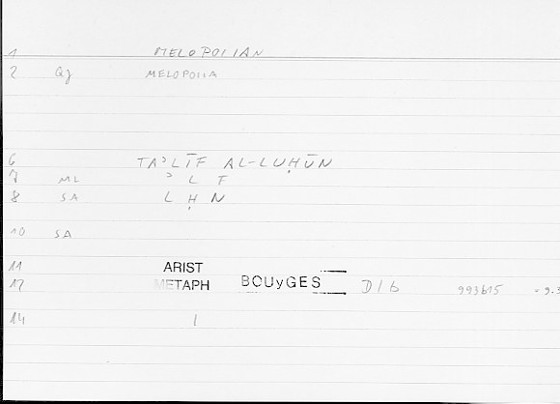 1 MELOPOIIAN
2 Qj MELOPOIIA
6 TAʾLĪF AL-LUḤŪN
7 ML ʾ L F
8 SA L Ḥ N
10 SA
11 ARIST
12 METAPH BOUyGES D16 993b15 -9.3
14 1